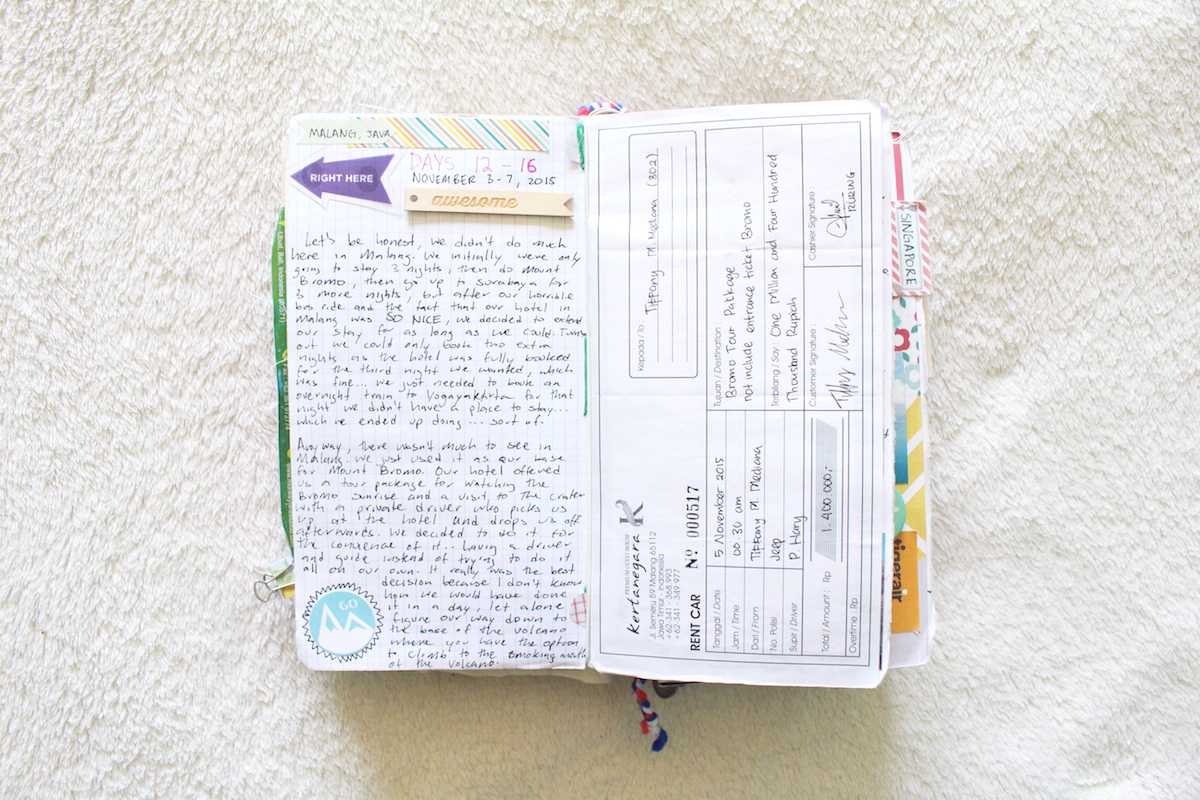 MALANG, JAVA
RIGHT HERE
DAYS 12 - 16
NOVEMBER 3-7, 2015
awesome
Let's be honest, we didn't do much
here in Malang. We initially were only
going to stay 3 nights, then do Mount
Bromo, then go up to Surabaya for
3 more nights, but after our horrible
bus ride and the fact that our hotel in
Malang was SO NICE, we decided to extend
our stay for as long as we could. Turns
out we could only book two extra
nights as the hotel was fully booked
for the third night we wanted, which
was fine... we just needed to book an
overnight train to Yogayakarta for that
night we didn't have a place to stay...
which we ended up doing... sort of.
Anyway, there wasn't much to see in
Malang. We just used it as our base
for Mount Bromo. Our hotel offered
us a tour package for watching the
Bromo sunrise and a visit to the crater
with a private driver who picks us
up at the hotel and drops us off
afterwards. We decided to do it for
the convience of it... having a driver
and guide instead of trying to do it
all on our own. It really was the best
decision because I don't know
how we would have done
it in a day, let alone
figure our way down to
the base of the volcano
where you have the option
to climb to the smoking mouth
of the volcano.
GO
PREMIUM GUEST HOUSE
kertanegara
Jl. Semeru 59 Malang 65112
Jawa Timur - Indonesia
+62-341 - 368 993
+62-341 - 349 977
Kepada / To :
Tiffany M. Mediana (302)
RENT CAR Nº 000517
Tanggal / Date 5 November 2015
Jam / Time 00.30 am
Dari / From Tiffany M. Mediana
No. Polisi Jeep
Supir / Driver P. Hary
Total / Amount : Rp 1.400.000,-
Overtime : Rp
Tujuan / Destination :
Bromo Tour Package
not include entrance ticket Bromo
Terbilang / Say : One Million and Four Hundred
Thousand Rupiah
Customer Signature :
Cashier Signature :
RURING
SINGAPORE
tigerair
Ubud, Bali, Indonesia